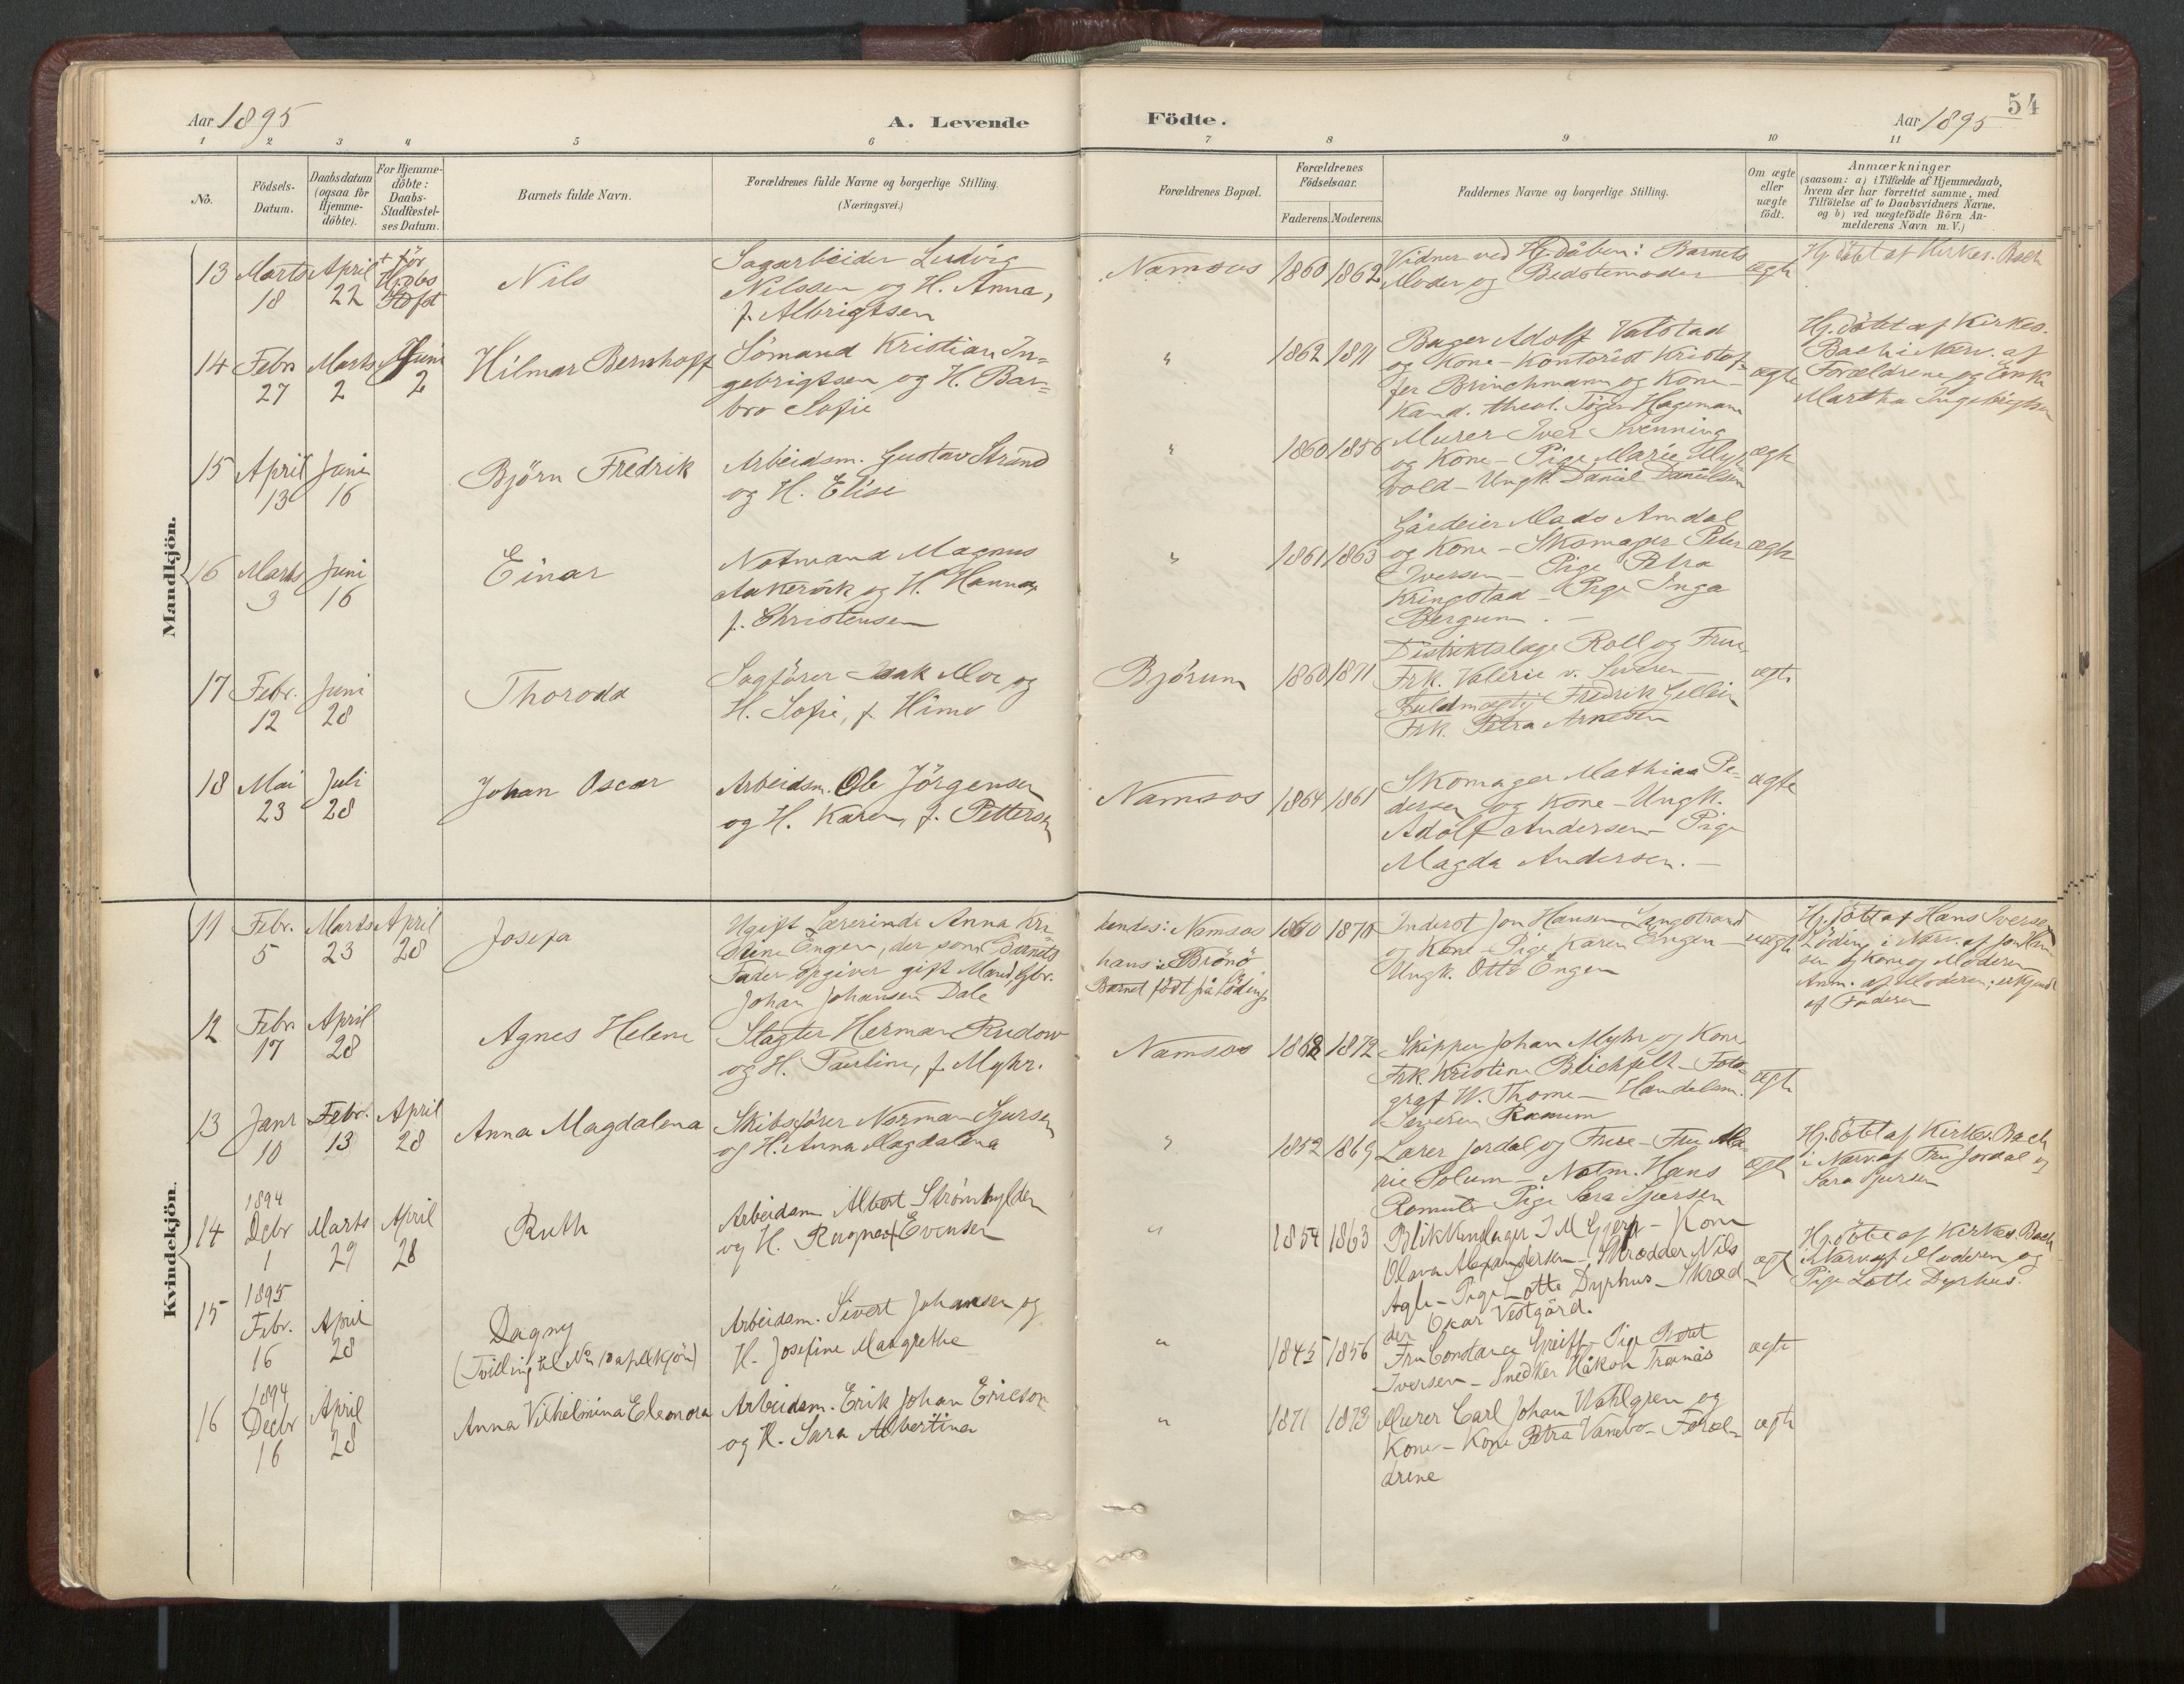 Aar 1895
A. Levende
Födte.
Aar 1895
54
1 2 3 4 5 6 7 8 9 10 11
No.
Födsels-
Datum.
Daabsdatum
(ogsaa for
Hjemme-
döbte).
For Hjemme-
döbte:
Daabs-
Stadfæstel-
ses Datum.
Barnets fulde Navn.
Forældrenes fulde Navne og borgerlige Stilling.
(Næringsvei.)
Forældrenes Bopæl.
Forældrenes
Födselsaar.
Faderens. Moderens.
Faddernes Navne og borgerlige Stilling.
Om ægte
eller
uægte
födt.
Anmærkninger
(saasom: a) i Tilfælde af Hjemmedaab,
hvem der har forrettet samme, med
Tilföielse af to Daabsvidners Navne,
og b) ved uægtefödte Börn An-
melderens Navn m. V.)
Mandkjön.
13 Marts 18 April 22 + för Hj.dbs Stdfst
Nils
Sagarbeider Ludvig
Nilssen og H. Anna,
f. Albrigtsen
Namsos 1860 1862
Vidner ved Hj.dåben: Barnets
Moder og Bedstemoder
ægte
Hj. döbt af Kirkes. Bach
14 Febr 27 Marts 2 Juni 2
Hilmar Bernhoff
Sömand Kristian In=
gebrigtsen og H. Bar=
bro Sofie
" 1862 1871
Bager Adolf Valstad
og Kone - Kontorist Kristof=
fer Brinchmann og Kone -
Kand. theol. Töger Hagemann
ægte
Hj. döbt af Kirkes.
Bach i Nærv. af
Forældrene og Enke
Martha Ingebrigtsen
15 April 13 Juni 16
Björn Fredrik
Arbeidsm. Gustav Strand
og H. Elise
" 1860 1856
Murer Iver Svenning
og Kone - Pige Marie Myr=
vold - Ungk. Daniel Danielsen
ægte
16 Marts 3 Juni 16
Einar
Notmand Magnus
Aakervik og H. Hanna,
f. Christensen
" 1861 1863
Gårdeier Mads Amdal
og Kone - Skomager Peter
Iversen - Pige Petra
Kringstad - Pige Inga
Bergum. -
ægte
17 Febr. 12 Juni 28
Thorodd
Sagförer Isak Moe og
H. Sofie, f. Himo
Bjørum 1860 1871
Distriktslæge Roll og Frue
Frk. Valerie v. Severen -
Fuldmægtig Fredrik Gellein
Frk. Petra Arnesen
ægte
18 Mai 23 Juli 28
Johan Oscar
Arbeidsm. Ole Jörgensen
og H. Karen, f. Pettersen
Namsos 1864 1861
Skomager Mathias Pe-
dersen og Kone - Ungk.
Adolf Andersen - Pige
Magda Andersen. -
ægte
Kvindekjön.
11 Febr. 5 Marts 23 April 28
Josefa
Ugift Lærerinde Anna Kri
stine Engen, der som Barnets
Fader opgiver gift Mand, Gbr.
Johan Johansen Dale
hendes: Namsos
hans: Brönö
Barnet födt på Löding
1860 1870
Inderst Jon Hansen Langstrand
og Kone - Pige Karen Engen -
Ungk. Otto Engen
uægte
Hj. döbt af Hans Iversen
Löding i Nærv. af Jon Han
sen og Kone og Moderen
Anm. af Moderen; erkjendt
af Faderen
12 Febr 17 April 28
Agnes Helene
Slagter Herman Rudow
og H. Pauline, f. Myhr.
Namsos 1868 1872
Skipper Johan Myhr og Kone
Frk. Kristine Blichfelt - Foto-
graf W. Thome - Handelsm.
Severin Ramum
ægte
13 Janr 10 Febr. 13 April 28
Anna Magdalena
Skibsförer Norman Sjursen
og H. Anna Magdalena
" 1852 1869
Lærer Jordal og Frue - Fru Ma-
rie Solum - Notm. Hans
Romule - Pige Sara Sjursen
ægte
Hj. döbt af Kirkes. Bach
i Nærv. af Fru Jordal og
Sara Sjursen
14 1894 Decbr 1 Marts 29 April 28
Ruth
Arbeidsm. Albert Strömhylden
og H. Ragna f. Evensen
" 1854 1863
Blikkenslager I M Gjerp - Kone
Olava Alexandersen - Skrædder Nils
Agle - Pige Lotte Dyrhus - Skræd-
der Oskar Vestgård.
ægte
Hj. döbt af Kirkes. Bach
i Nærv. af Moderen og
Pige Lotte Dyrhus.
15 1895 Febr. 16 April 28
Dagny
(Tvilling til No 10 af M.kjön)
Arbeidsm. Sivert Johansen og
H. Josefine Margrethe
" 1845 1856
Fru Constance Greiff - Pige Beret
Iversen - Snedker Håkon Trænäs
ægte
16 1894 Decbr 16 April 28
Anna Vilhelmina Eleonora
Arbeidsm. Erik Johan Ericson
og H. Sara Albertina
" 1871 1873
Murer Carl Johan Wahlgren og
Kone - Kone Petra Vanebo - Foræl-
drene
ægte